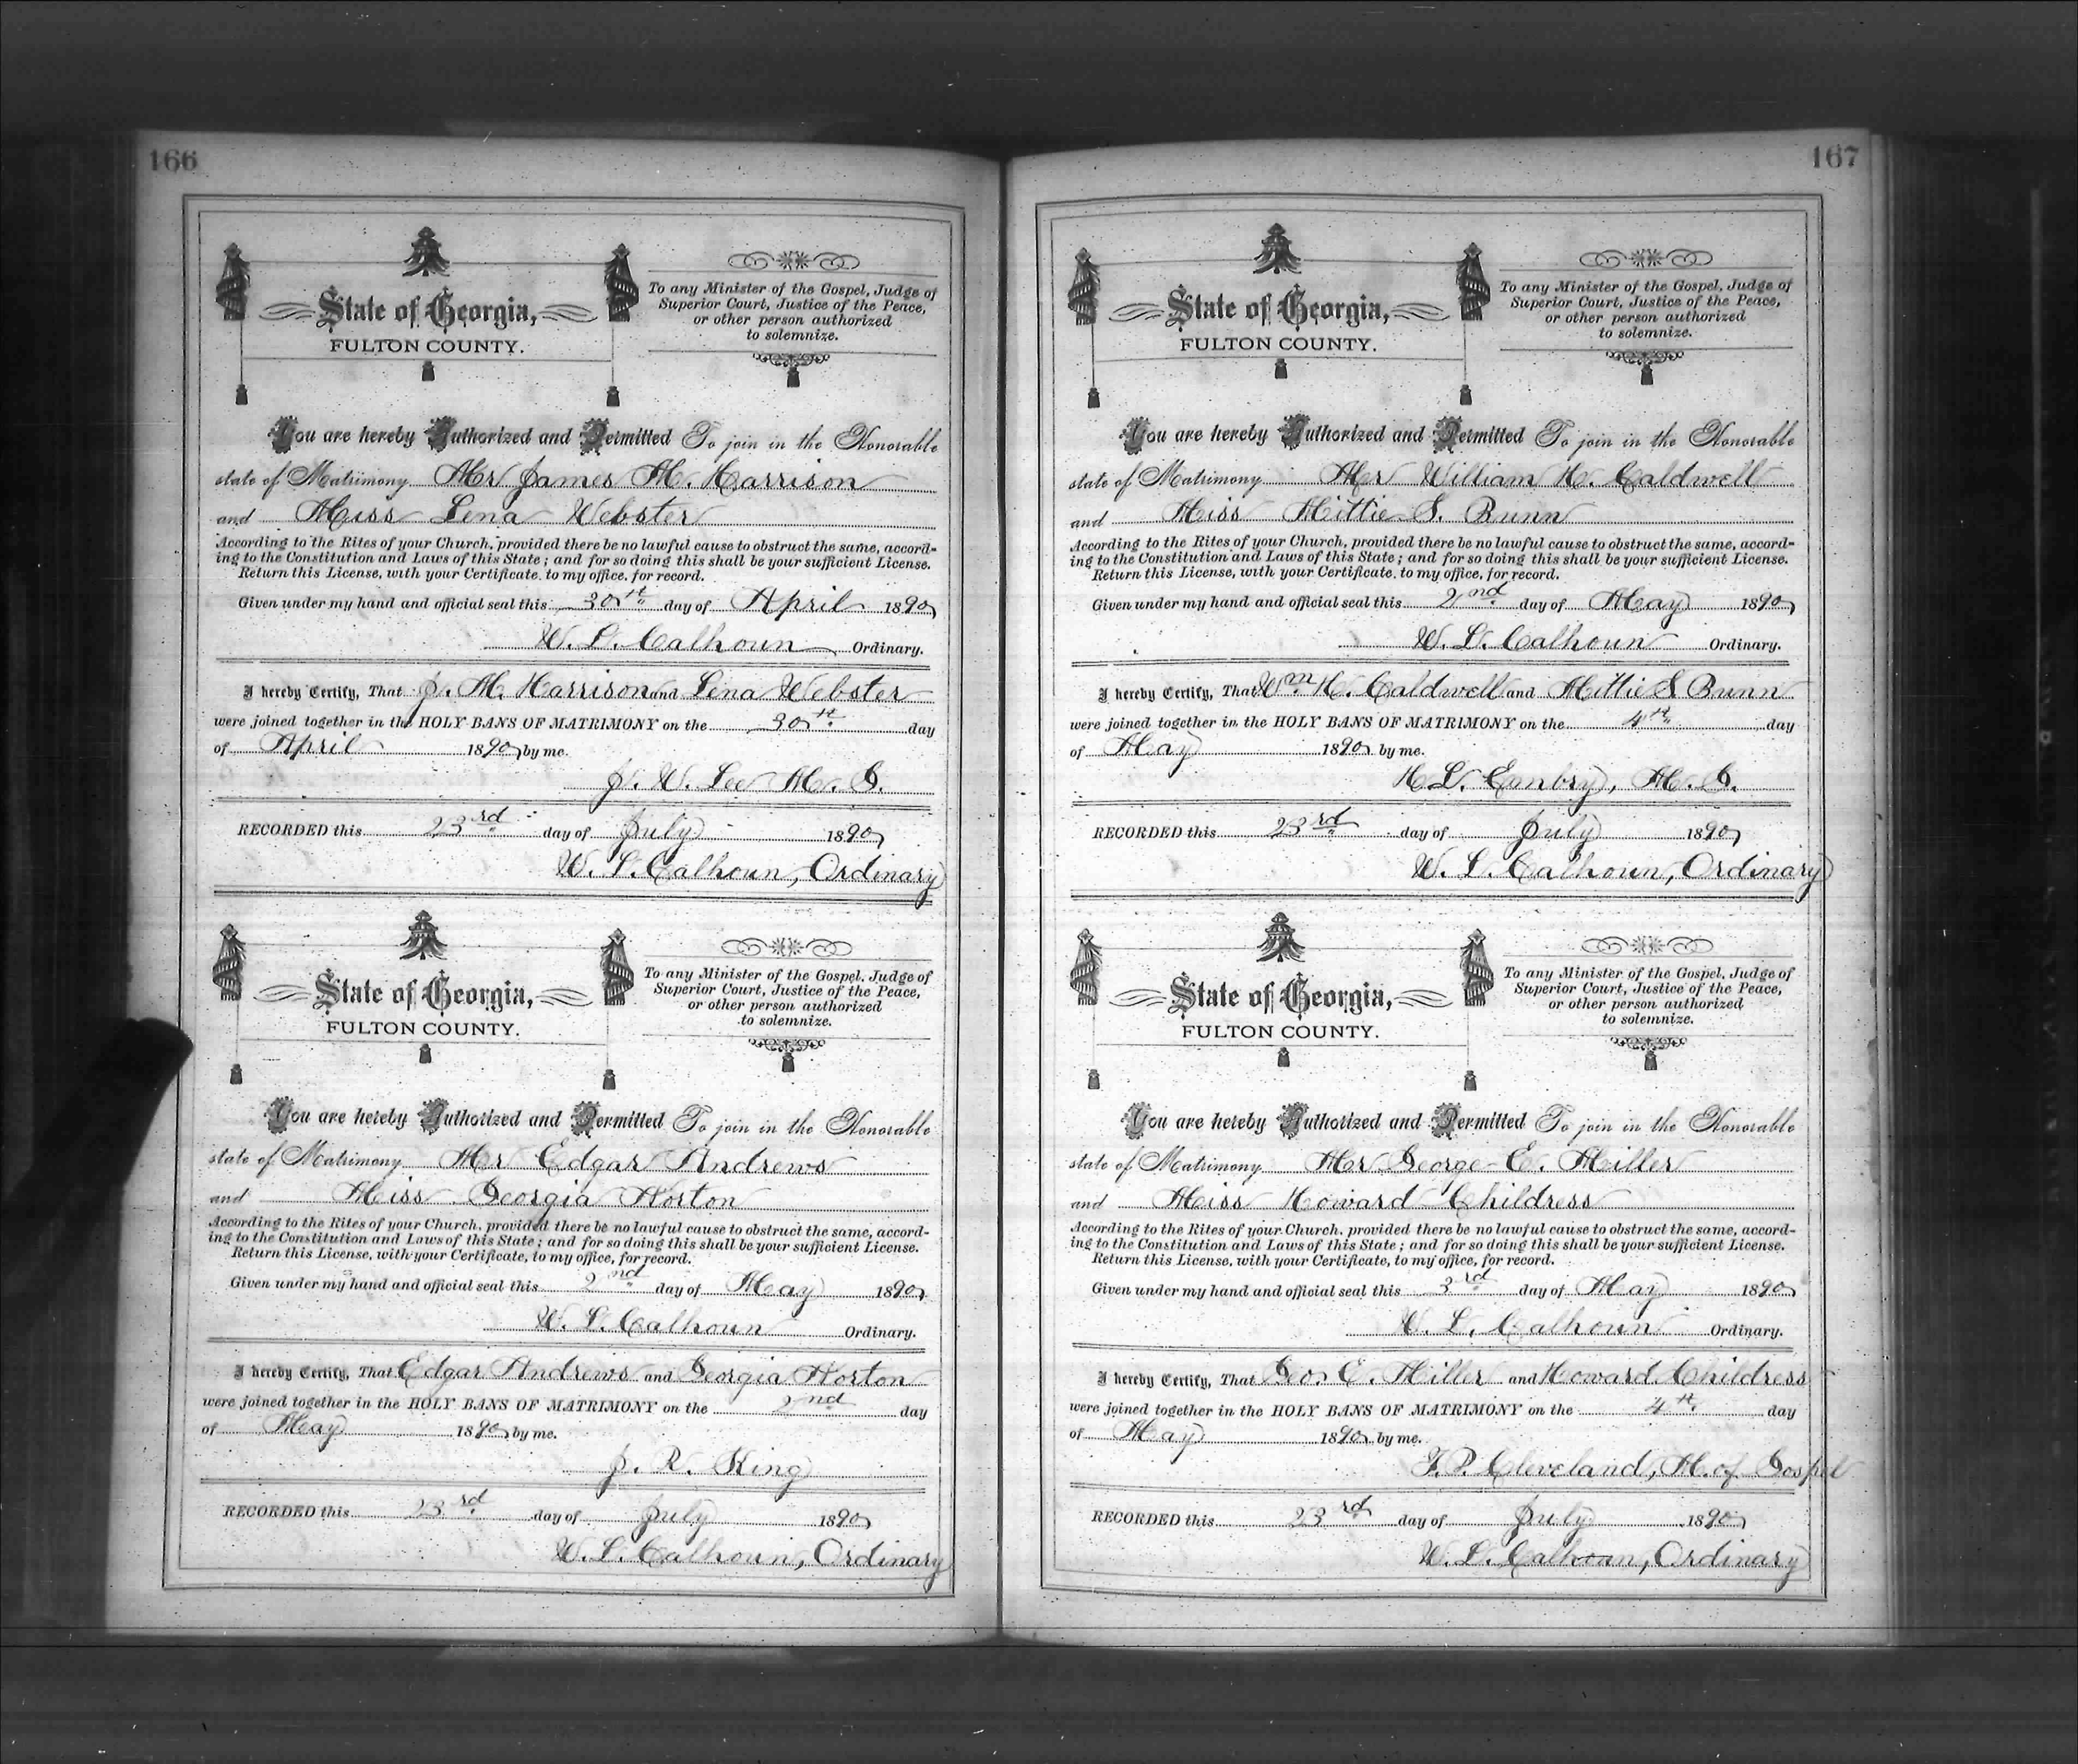 166
State of Georgia,
FULTON COUNTY.
To any Minister of the Gospel, Judge of
Superior Court, Justice of the Peace,
or other person authorized
to solemnize.
You are hereby Authorized and Permitted To join in the Honorable
state of Matrimony Mr James M. Harrison
and Miss Lena Webster
According to the Rites of your Church, provided there be no lawful cause to obstruct the same, accord-
ing to the Constitution and Laws of this State; and for so doing this shall be your sufficient License.
Return this License, with your Certificate, to my office, for record.
Given under my hand and official seal this 30th day of April 1890
W. L. Calhoun Ordinary.
I hereby Certify, That J. M. Harrison and Lena Webster
were joined together in the HOLY BANS OF MATRIMONY on the 30th day
of April 1890 by me.
J. W. Lee M. G.
RECORDED this 23rd day of July 1890
W. L. Calhoun, Ordinary
State of Georgia,
FULTON COUNTY.
To any Minister of the Gospel, Judge of
Superior Court, Justice of the Peace,
or other person authorized
to solemnize.
You are hereby Authorized and Permitted To join in the Honorable
state of Matrimony Mr Edgar Andrews
and Miss Georgia Horton
According to the Rites of your Church, provided there be no lawful cause to obstruct the same, accord-
ing to the Constitution and Laws of this State; and for so doing this shall be your sufficient License.
Return this License, with your Certificate, to my office, for record.
Given under my hand and official seal this 2nd day of May 1890
W. L. Calhoun Ordinary.
I hereby Certify, That Edgar Andrews and Georgia Horton
were joined together in the HOLY BANS OF MATRIMONY on the 2nd day
of May 1890 by me.
J. R. King
RECORDED this 23rd day of July 1890
W. L. Calhoun, Ordinary
167
State of Georgia,
FULTON COUNTY.
To any Minister of the Gospel, Judge of
Superior Court, Justice of the Peace,
or other person authorized
to solemnize.
You are hereby Authorized and Permitted To join in the Honorable
state of Matrimony Mr William H. Caldwell
and Miss Mittie S. Bunn
According to the Rites of your Church, provided there be no lawful cause to obstruct the same, accord-
ing to the Constitution and Laws of this State; and for so doing this shall be your sufficient License.
Return this License, with your Certificate, to my office, for record.
Given under my hand and official seal this 2nd day of May 1890
W. L. Calhoun Ordinary.
I hereby Certify, That Wm H. Caldwell and Mittie S Bunn
were joined together in the HOLY BANS OF MATRIMONY on the 4th day
of May 1890 by me.
H. L. Embry, M. G.
RECORDED this 23rd day of July 1890
W. L. Calhoun, Ordinary
State of Georgia,
FULTON COUNTY.
To any Minister of the Gospel, Judge of
Superior Court, Justice of the Peace,
or other person authorized
to solemnize.
You are hereby Authorized and Permitted To join in the Honorable
state of Matrimony Mr George E. Miller
and Miss Howard Childress
According to the Rites of your Church, provided there be no lawful cause to obstruct the same, accord-
ing to the Constitution and Laws of this State; and for so doing this shall be your sufficient License.
Return this License, with your Certificate, to my office, for record.
Given under my hand and official seal this 3rd day of May 1890
W. L. Calhoun Ordinary.
I hereby Certify, That Geo. E. Miller and Howard Childress
were joined together in the HOLY BANS OF MATRIMONY on the 4th day
of May 1890 by me.
F. P. Cleveland, M. of Gospel
RECORDED this 23rd day of July 1890
W. L. Calhoun, Ordinary